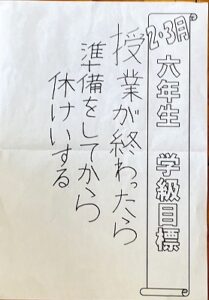 2・3月 六年生 学級目標
授業が終わったら
準備をしてから
休けいする